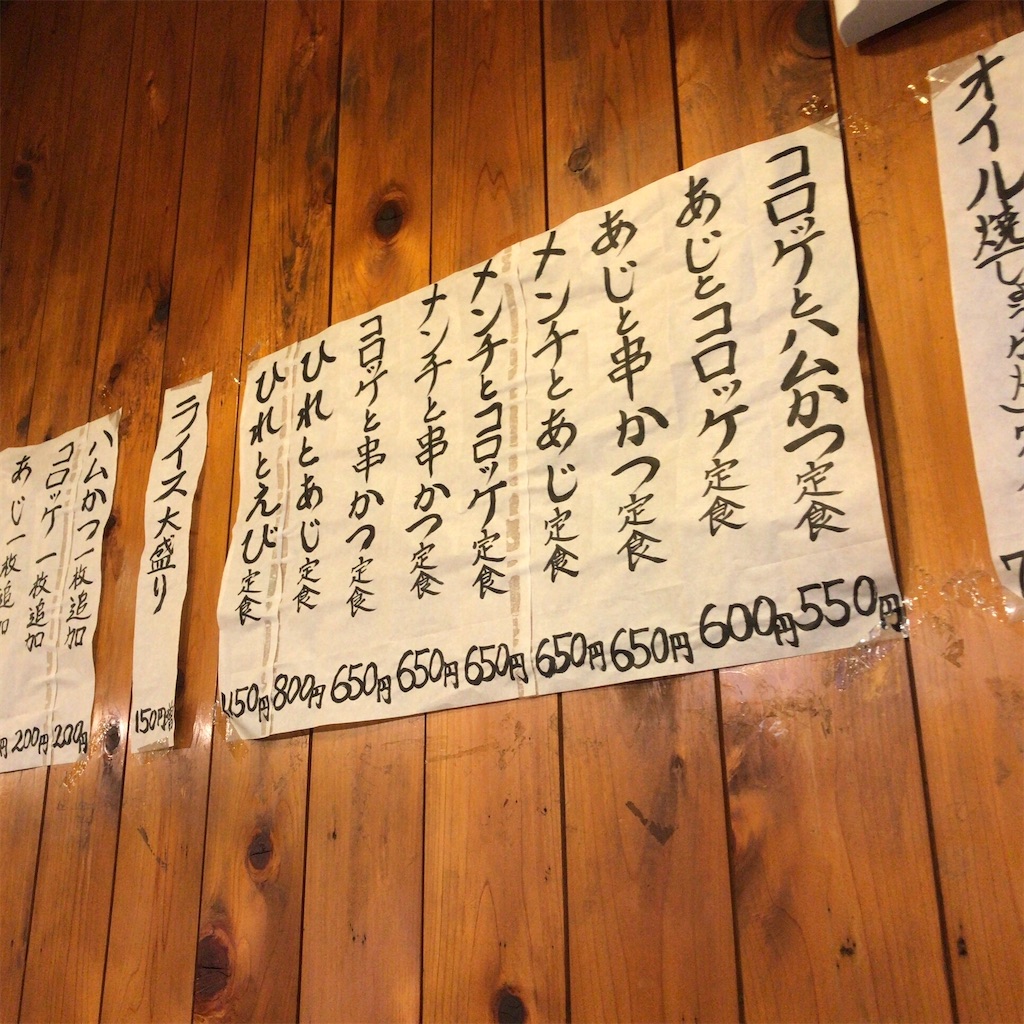 オイル焼
コロッケとハムかつ定食 550円
あじとコロッケ定食 600円
あじと串かつ定食 650円
メンチとあじ定食 650円
メンチとコロッケ定食 650円
メンチと串かつ定食 650円
コロッケと串かつ定食 650円
ひれとあじ定食 800円
ひれとえび定食
ライス大盛り 150円増
ハムかつ一枚追加 200円
コロッケ一枚追加 200円
あじ一枚追加 円